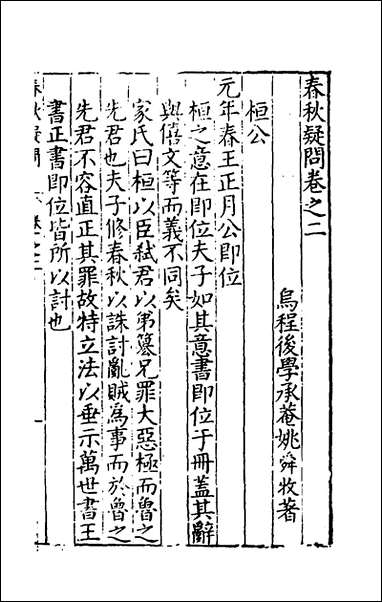 春秋疑問卷之二
烏程後學承菴姚舜牧著
桓公
元年春王正月公即位
桓之意在即位夫子如其意書即位于冊蓋其辭
與僖文等而義不同矣
家氏曰桓以臣弑君以弟簒兄罪大惡極而魯之
先君也夫子修春秋以誅討亂賊為事而於魯之
先君不容直正其罪故特立法以垂示萬世書王
書正書即位皆所以討也
春秋疑問